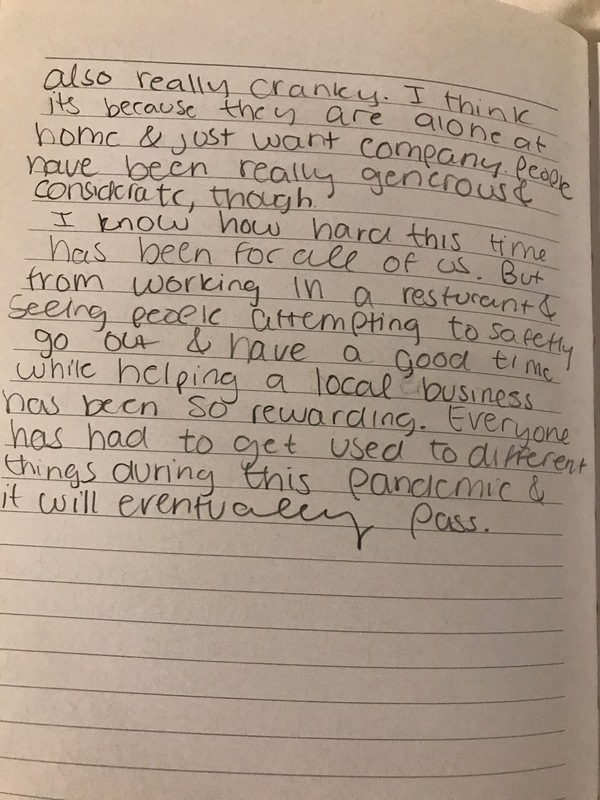 also really cranky. I think
its because they are alone at
home & just want company. People
have been really generous &
considerate, though.
I know how hard this time
has been for all of us. But
from working in a resturant &
seeing people attempting to safetly
go out & have a good time
while helping a local business
has been so rewarding. Everyone
has had to get used to different
things during this pandemic &
it will eventually pass.